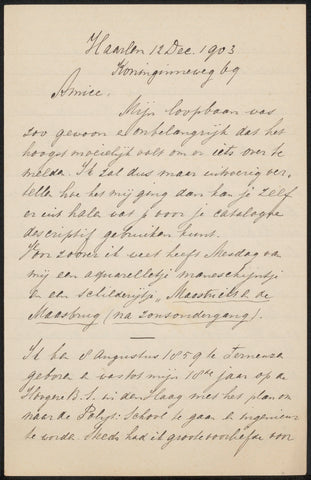 Haarlem 12 Dec. 1903
Koninginneweg 69
Amice,
Mijn loopbaan was
zoo gewoon en onbelangrijk dat het
hoogst moeielijk valt om er iets over te
melden. Ik zal dus maar uitvoerig ver-
tellen hoe het mij ging dan kan je zelf
er uit halen wat je voor je catalogue
descriptif gebruiken kunt.
Voor zoover ik weet heeft Mesdag van
mij een aquarelletje maneschijntje
en een schilderijtje "Maastricht en de
Maasbrug (na zonsondergang).
Ik ben 8 Augustus 1859 te Terneuzen
geboren en was tot mijn 18de jaar op de
Hoogere B. S. in den Haag met het plan om
naar de Polyt. School te gaan en ingenieur
te worden. Steeds had ik groote voorliefde voor